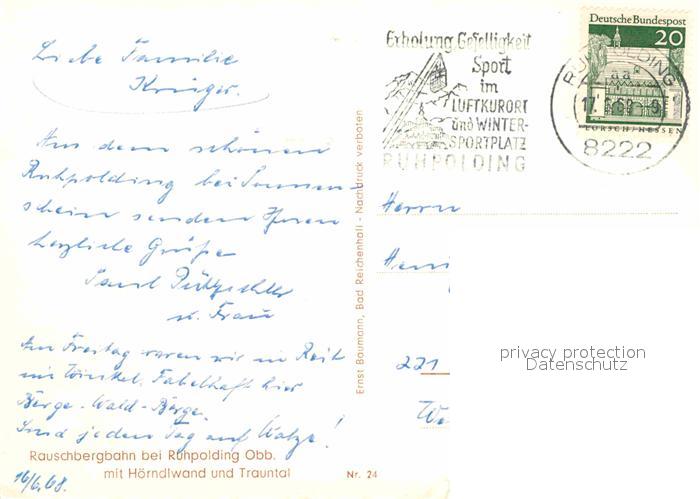 Liebe Familie
Krüger.
Aus dem schönen
Ruhpolding bei Sonnen-
schein senden Ihnen
herzliche Grüße
u. Frau
Am Freitag waren wir in Reit
im Winkel. Fabelhaft hier
Berge - Wald - Berge.
Sind jeden Tag auf Walze!
Rauschbergbahn bei Ruhpolding Obb.
mit Hörndlwand und Trauntal
Nr. 24
16/6.68.
Ernst Baumann, Bad Reichenhall - Nachdruck verboten
Erholung, Geselligkeit
Sport
im
LUFTKURORT
und WINTER-
SPORTPLATZ
RUHPOLDING
Deutsche Bundespost
20
LORSCH/HESSEN
RUHPOLDING
8222
Herrn
221
privacy protection
Datenschutz